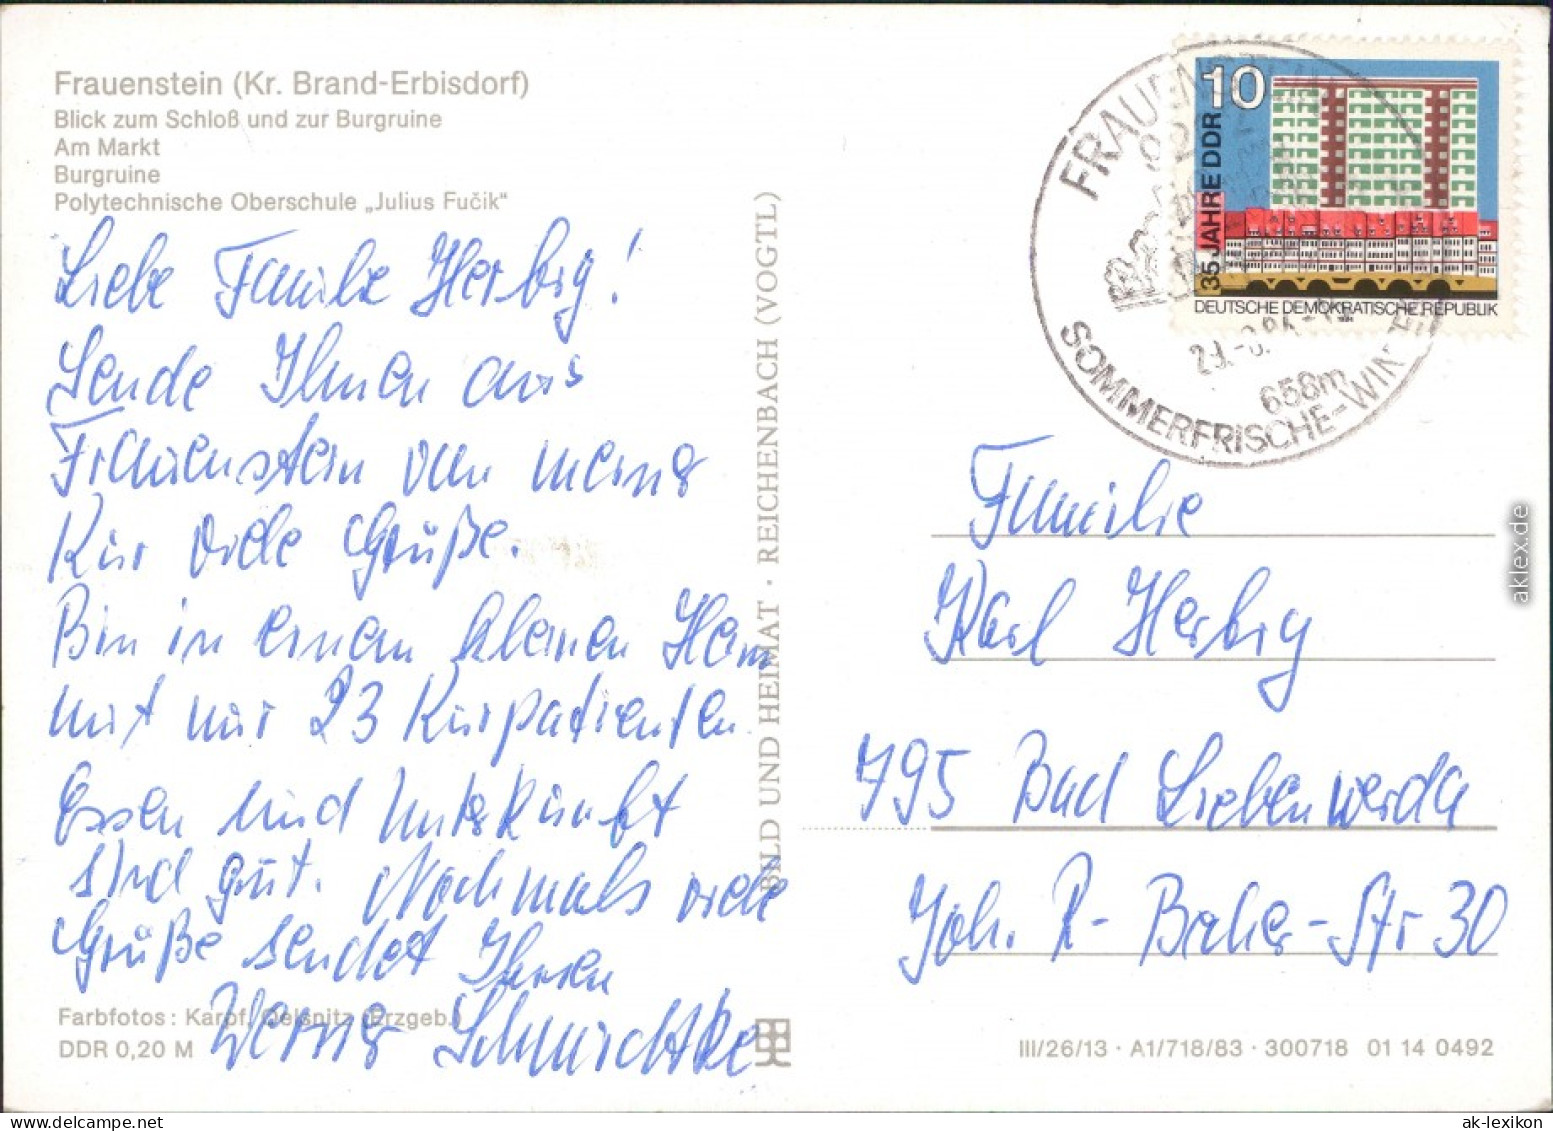 Frauenstein (Kr. Brand-Erbisdorf)
Blick zum Schloß und zur Burgruine
Am Markt
Burgruine
Polytechnische Oberschule „Julius Fučik"
Liebe Familie Herbig!
Sende Ihnen aus
Frauenstein von meiner
Kur viele Grüße.
Bin in einem kleinen Heim
mit nur 23 Kurpatienten.
Essen und Unterkunft
sind gut. Nochmals viele
Grüße sendet Ihnen
Werner
Farbfotos: Karpf, Oelsnitz (Erzgeb.)
DDR 0,20 M
BILD UND HEIMAT · REICHENBACH (VOGTL)
10
35 JAHRE DDR
DEUTSCHE DEMOKRATISCHE REPUBLIK
1984
FRAUENSTEIN
658m
SOMMERFRISCHE-WINTER
Familie
Karl Herbig
795 Bad Liebenwerda
Joh. R- Becher-Str 30
III/26/13 · A1/718/83 · 300718 01 14 0492
aklex.de
ak-lexikon